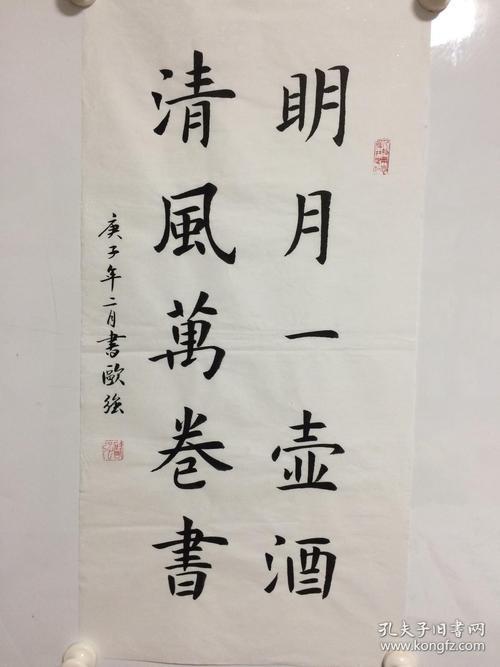 明月一壺酒
清風萬卷書
庚子年二月書歐強
孔夫子旧书网
www.kongfz.com